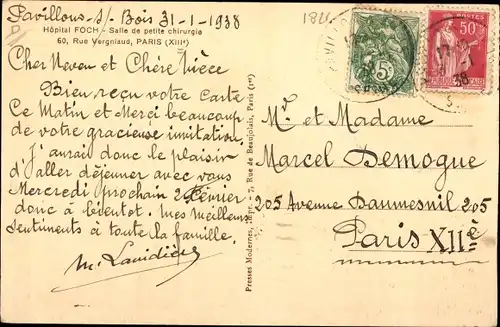 Pavillons s/ Bois 31-1-1938
Hôpital FOCH - Salle de petite chirurgie
60, Rue Vergniaud, PARIS (XIIIe)
Cher Neveu et Chère Nièce
Bien reçu votre Carte
Ce Matin et Merci beaucoup
de votre gracieuse invitation.
J'aurai donc le plaisir
d'aller déjeuner avec vous
Mercredi prochain 2 Février
donc à bientot. Mes Meilleurs
Sentiments à toute la famille.
Presses Modernes, 7, Rue de Beaujolais, Paris (1er)
5c
50c
POSTES
Mr et Madame
Marcel Demogue
205 Avenue Daumesnil 205
Paris XIIe